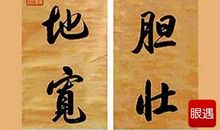 胆壮
地寬
眼遇